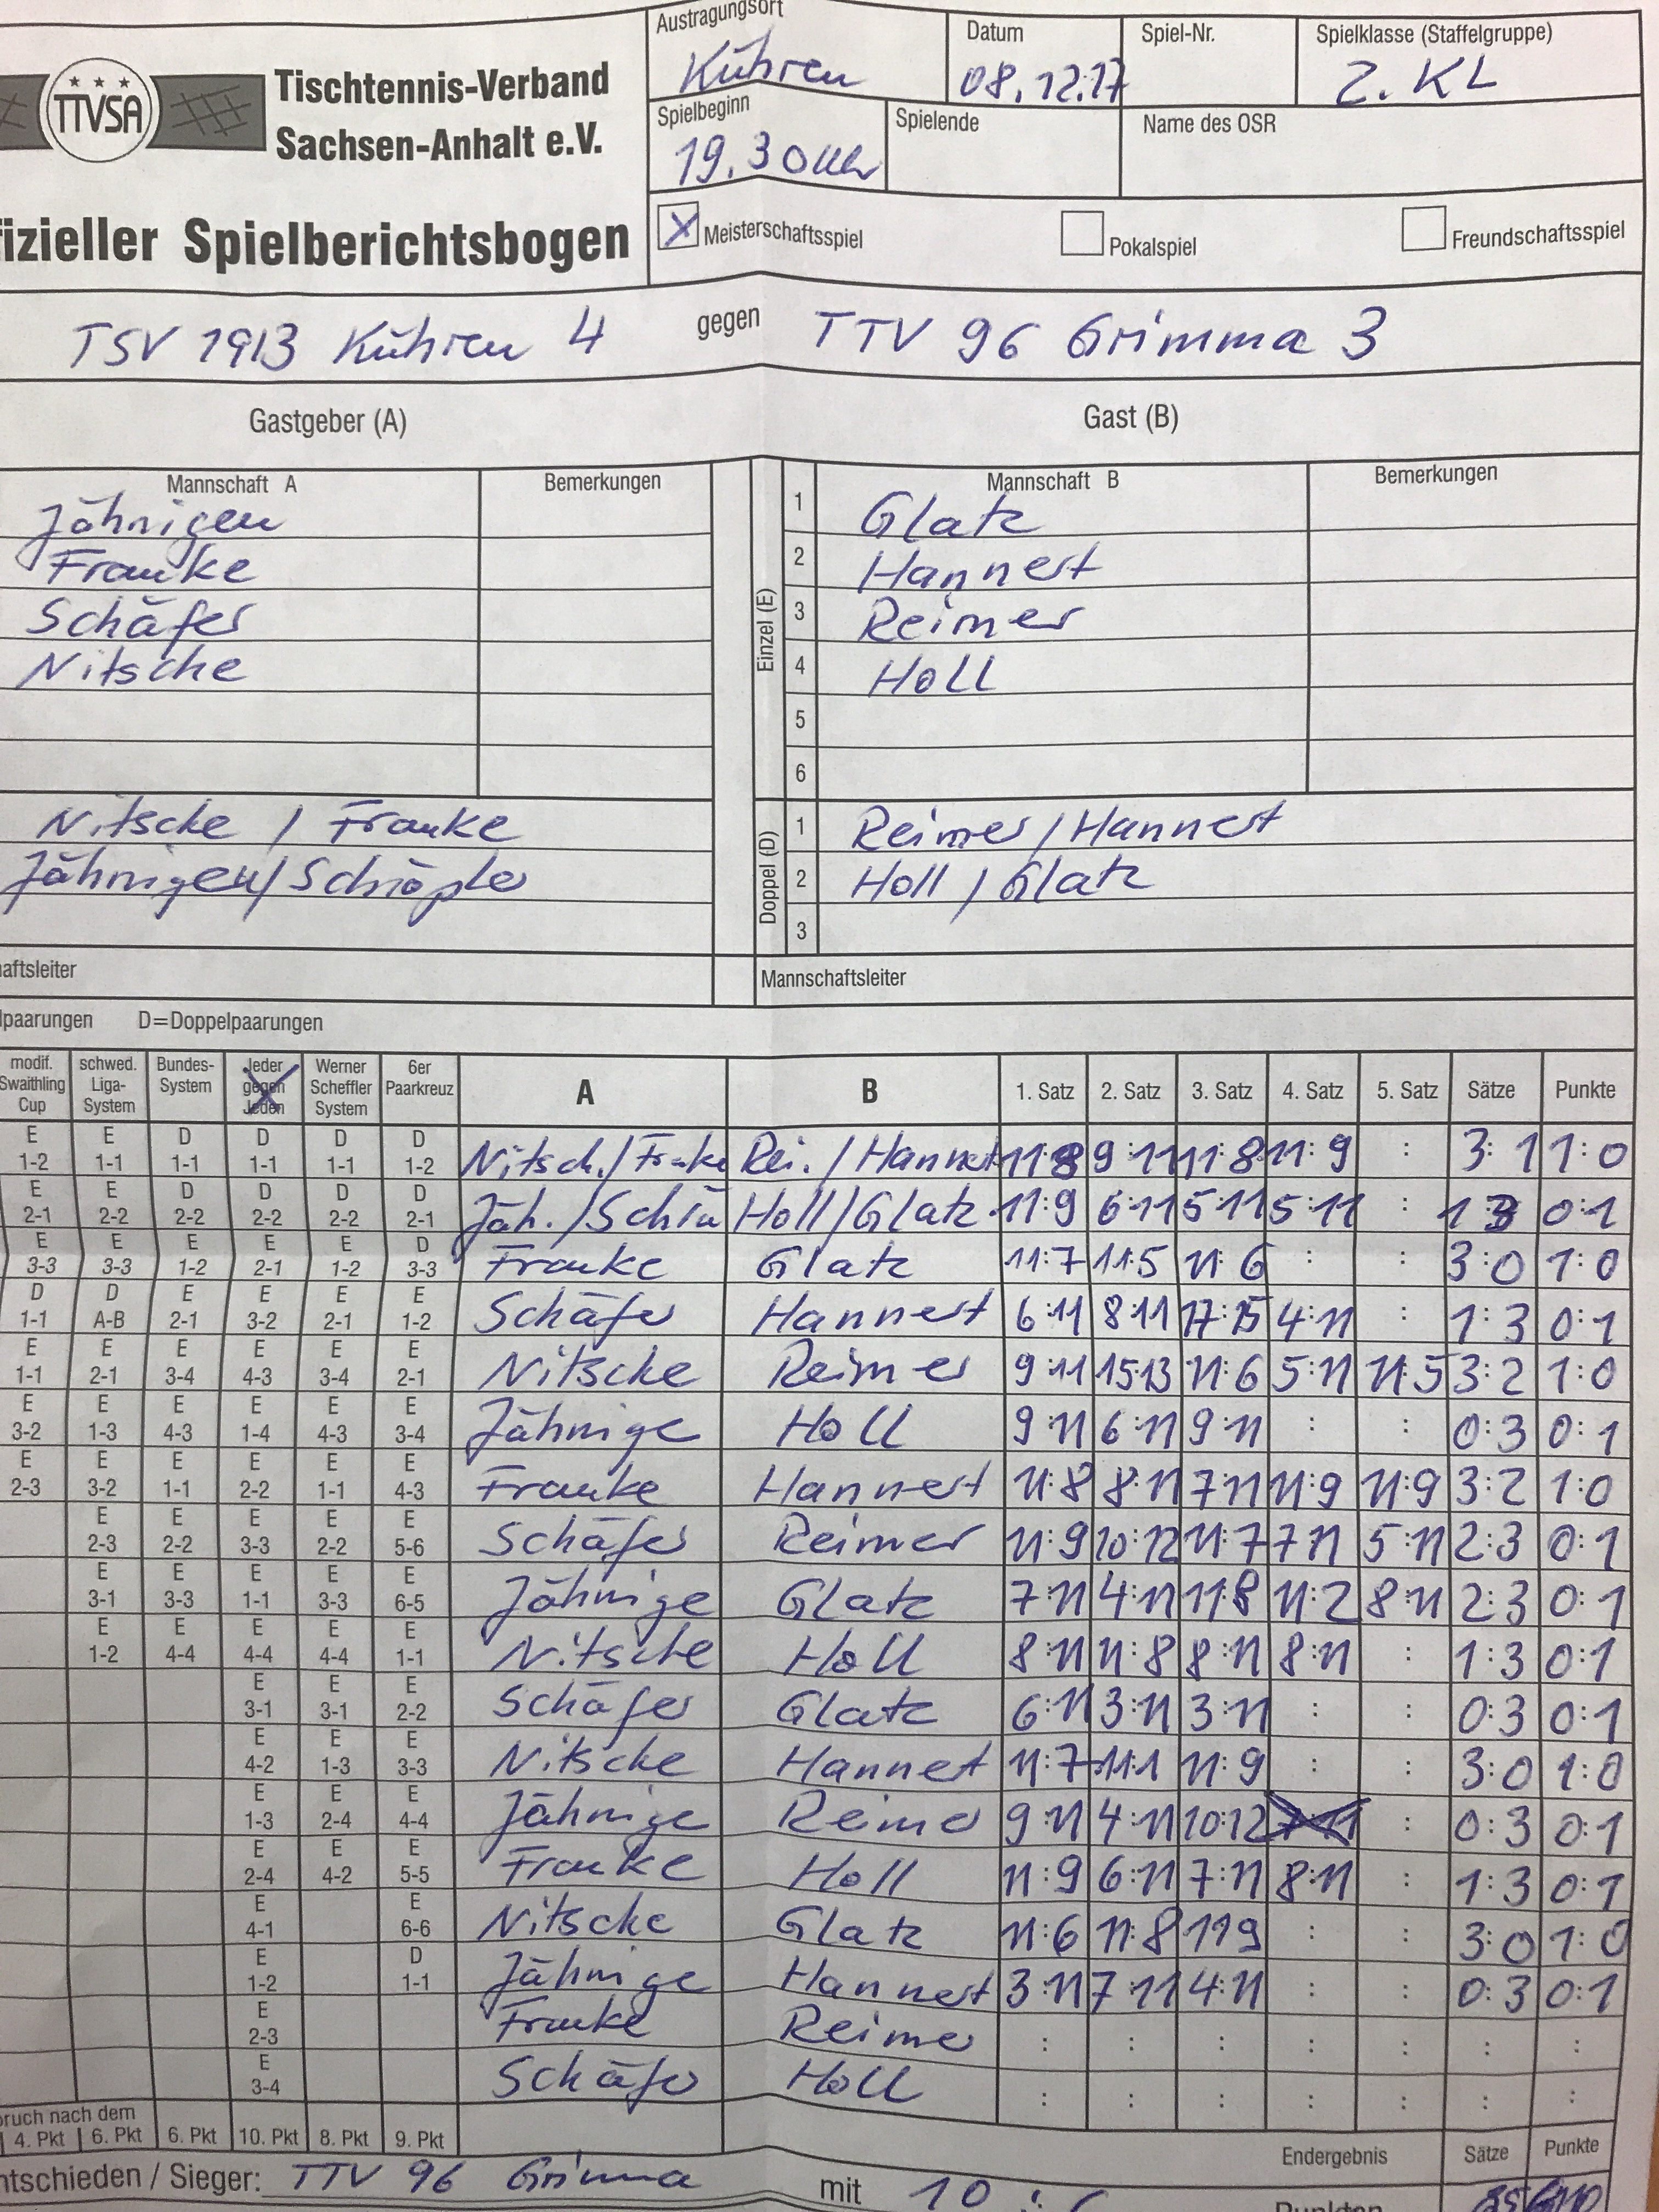 Austragungsort Datum Spiel-Nr. Spielklasse (Staffelgruppe)
Kühren 08.12.17 2. KL
TTVSA
Tischtennis-Verband
Sachsen-Anhalt e.V.
Spielbeginn Spielende Name des OSR
19.30 Uhr
fizieller Spielberichtsbogen
X Meisterschaftsspiel Pokalspiel Freundschaftsspiel
TSV 1913 Kühren 4 gegen TTV 96 Grimma 3
Gastgeber (A) Gast (B)
Mannschaft A Bemerkungen Einzel (E) Mannschaft B Bemerkungen
Jähnigen 1 Glatz
Franke 2 Hannert
Schäfer 3 Reimer
Nitsche 4 Holl
5
6
Nitscke / Franke Doppel (D) 1 Reimer / Hannert
Jähnigen / 2 Holl / Glatz
3
aftsleiter Mannschaftsleiter
lpaarungen D=Doppelpaarungen
modif. Swaithling Cup schwed. Liga-System Bundes-System Jeder gegen Jeden Werner Scheffler System 6er Paarkreuz A B 1. Satz 2. Satz 3. Satz 4. Satz 5. Satz Sätze Punkte
E 1-2 E 1-1 D 1-1 D 1-1 D 1-1 D 1-2 Nitsch. / Franke Rei. / Hannert 11:8 9:11 11:8 11:9 : 3:1 1:0
E 2-1 E 2-2 D 2-2 D 2-2 D 2-2 D 2-1 Jäh. / Schrä Holl / Glatz 11:9 6:11 5:11 5:11 : 1:3 0:1
E 3-3 E 3-3 E 1-2 E 2-1 E 1-2 D 3-3 Franke Glatz 11:7 11:5 11:6 : : 3:0 1:0
D 1-1 D A-B E 2-1 E 3-2 E 2-1 E 1-2 Schäfer Hannert 6:11 8:11 17:15 4:11 : 1:3 0:1
E 1-1 E 2-1 E 3-4 E 4-3 E 3-4 E 2-1 Nitscke Reimer 9:11 15:13 11:6 5:11 11:5 3:2 1:0
E 3-2 E 1-3 E 4-3 E 1-4 E 4-3 E 3-4 Jähnige Holl 9:11 6:11 9:11 : : 0:3 0:1
E 2-3 E 3-2 E 1-1 E 2-2 E 1-1 E 4-3 Franke Hannert 11:8 8:11 7:11 11:9 11:9 3:2 1:0
E 2-3 E 2-2 E 3-3 E 2-2 E 5-6 Schäfer Reimer 11:9 10:12 11:7 7:11 5:11 2:3 0:1
E 3-1 E 3-3 E 1-1 E 3-3 E 6-5 Jähnige Glatz 7:11 4:11 11:8 11:2 8:11 2:3 0:1
E 1-2 E 4-4 E 4-4 E 4-4 E 1-1 Nitsche Holl 8:11 11:8 8:11 8:11 : 1:3 0:1
E 3-1 E 3-1 E 2-2 Schäfer Glatz 6:11 3:11 3:11 : : 0:3 0:1
E 4-2 E 1-3 E 3-3 Nitscke Hannet 11:7 11:1 11:9 : : 3:0 1:0
E 1-3 E 2-4 E 4-4 Jähnige Reimer 9:11 4:11 10:12 : 0:3 0:1
E 2-4 E 4-2 E 5-5 Franke Holl 11:9 6:11 7:11 8:11 : 1:3 0:1
E 4-1 E 6-6 Nitscke Glatz 11:6 11:8 11 9 : : 3:0 1:0
E 1-2 D 1-1 Jähnige Hannert 3:11 7:11 4:11 : : 0:3 0:1
E 2-3 Franke Reimer : : : : : : :
E 3-4 Schäfer Holl : : : : : : :
bruch nach dem
4. Pkt 6. Pkt 6. Pkt 10. Pkt 8. Pkt 9. Pkt Endergebnis Sätze Punkte
ntschieden / Sieger: TTV 96 Grimma mit 10 : 6 Punkten